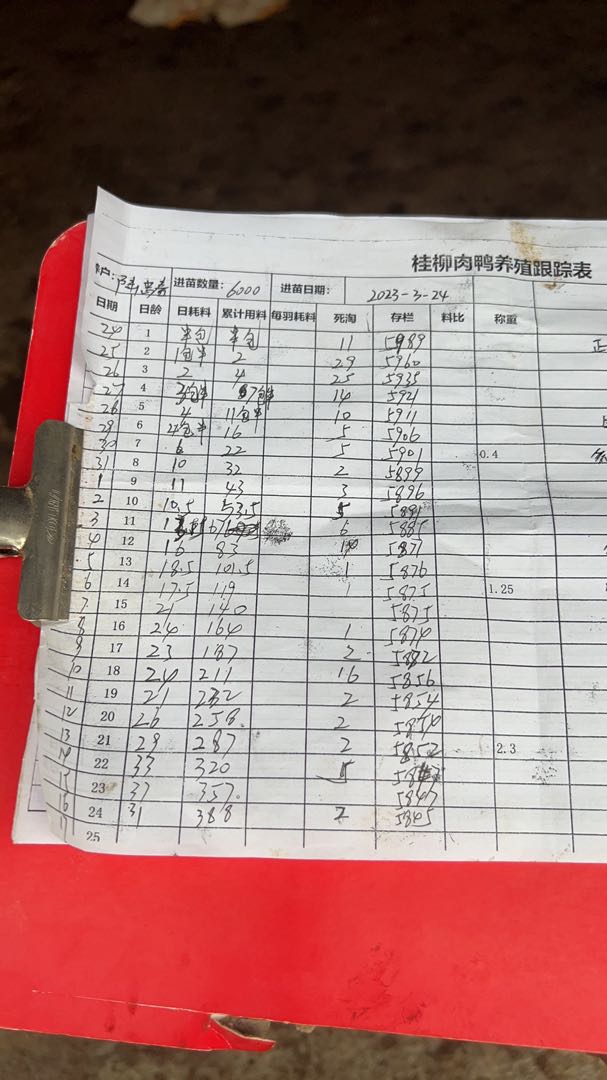 桂柳肉鸭养殖跟踪表
户: 进苗数量: 6000 进苗日期: 2023-3-24
日期 日龄 日耗料 累计用料 每羽耗料 死淘 存栏 料比 称重
24 1 半包 半包 11 5989
25 2 1包半 2 29 5960
26 3 2 4 25 5935
27 4 包半 7包半 14 5921
5 4 11包半 10 5911
6 包半 16 5 5906
30 7 6 22 5 5901 0.4
31 8 10 32 2 5899
1 9 11 43 3 5896
2 10 10.5 53.5 5 5891
3 11 6 5885
4 12 16 83 5871
5 13 18.5 101.5 1 5876
6 14 17.5 119 5875 1.25
7 15 21 140 5875
8 16 24 164 1 5874
9 17 23 187 2
10 18 24 211 16 5856
11 19 21 232 2 5854
12 20 26 258 2
13 21 29 287 2 5852 2.3
14 22 33 320 5
15 23 37 357 5847
16 24 31 388 2 5845
17 25